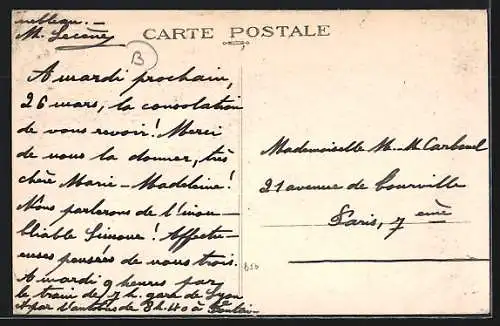 nebleau. –
M. Lecène
CARTE POSTALE
B
A mardi prochain,
26 mars, la consolation
de vous revoir ! Merci
de nous la donner, très
chère Marie-Madeleine !
Nous parlerons de l'inou-
bliable Simone ! Affectu-
euses pensées de nous trois.
A mardi 9 heures par
le train de 7 h. gare de Lyon
de 8h.40 à Fontai-
Mademoiselle M.-M Carbonel
21 avenue de Tourville
Paris, 7 ème